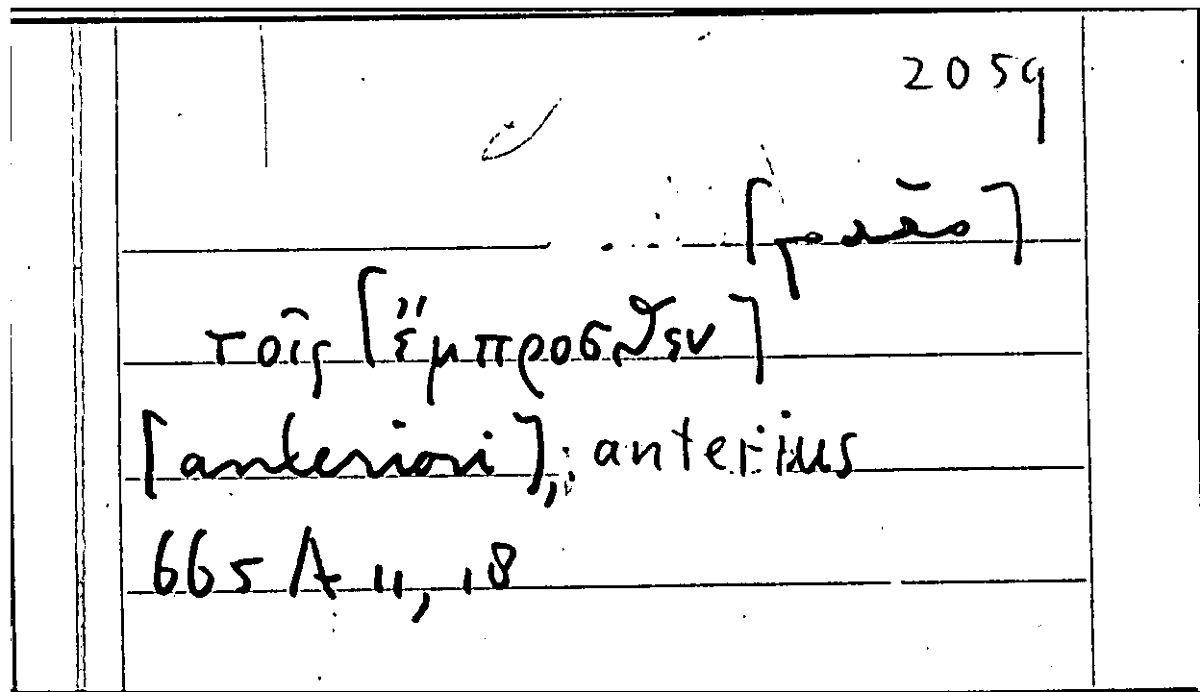 2059
τοῖς [ἔμπροσθεν]
[anteriori], ; anterius
665 A 11, 18